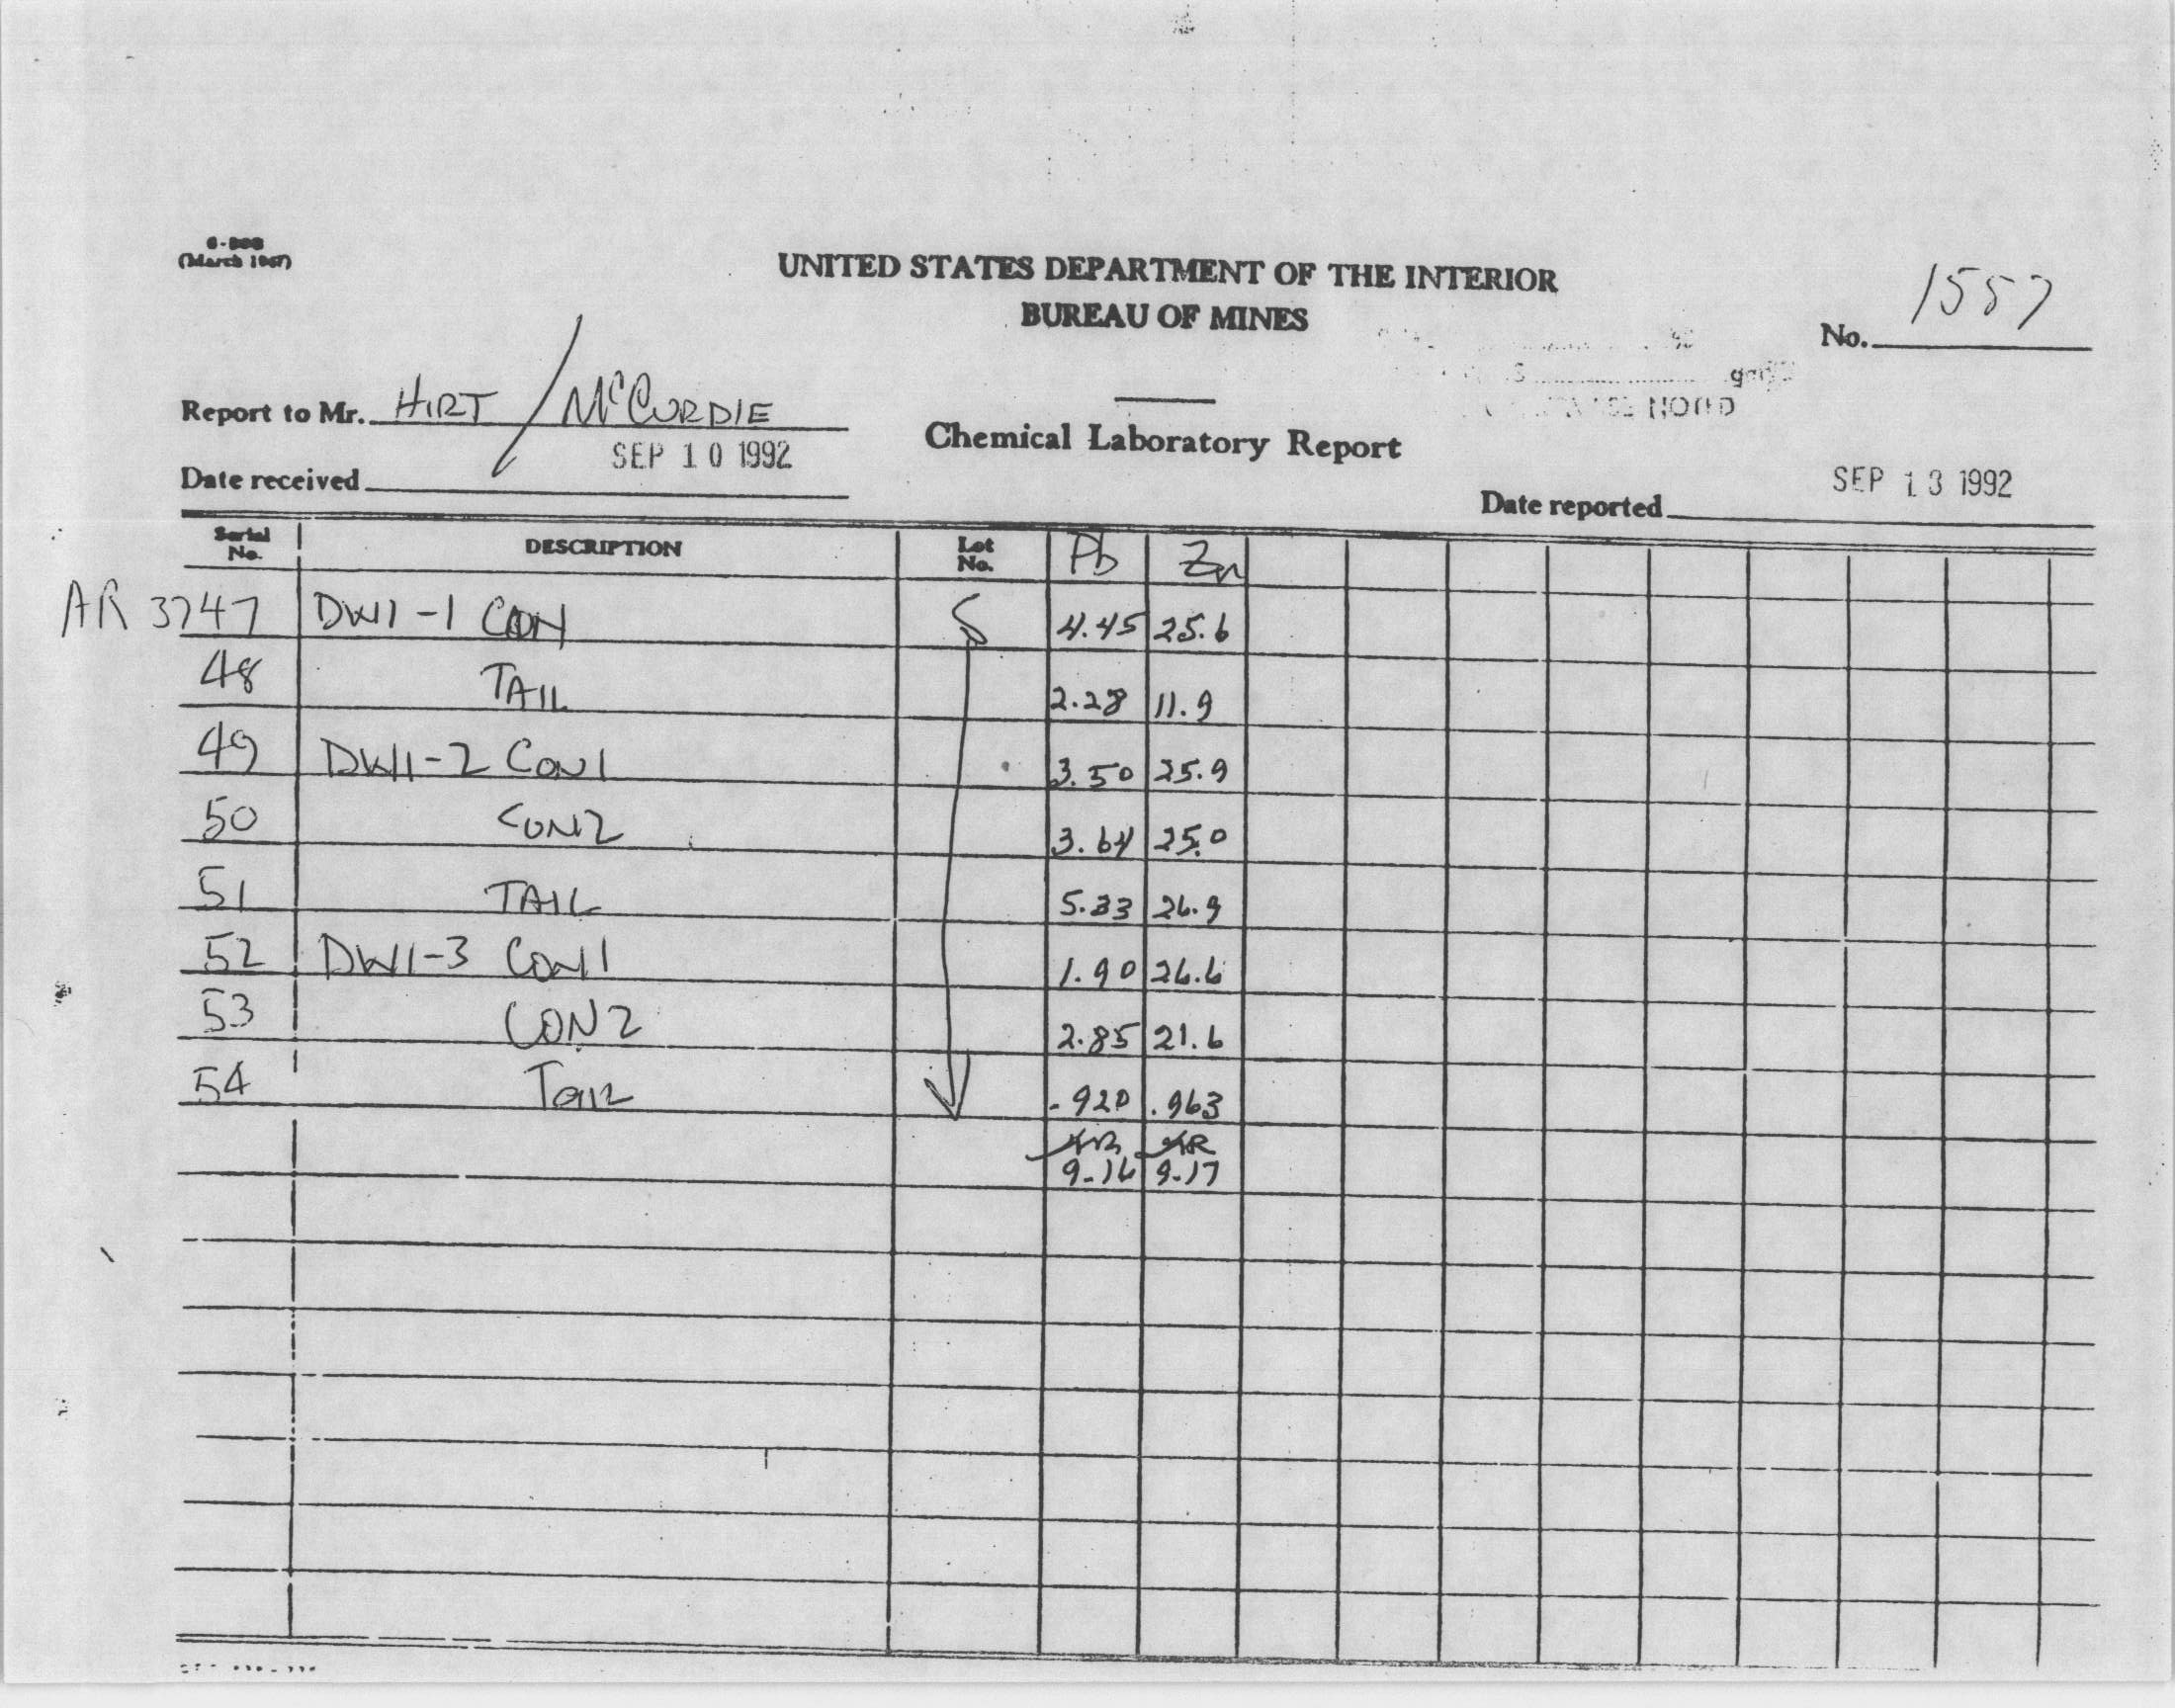 (March 1967)
UNITED STATES DEPARTMENT OF THE INTERIOR
BUREAU OF MINES
No. 1557
Report to Mr. HIRT / McCURDIE
Chemical Laboratory Report
Date received SEP 10 1992
Date reported SEP 13 1992
Serial No. DESCRIPTION Lot No. Pb Zn
AR 3747 DW1-1 CON S 4.45 25.6
48 TAIL 2.28 11.9
49 DW1-2 CON1 3.50 25.9
50 CON2 3.64 25.0
51 TAIL 5.33 26.9
52 DW1-3 CON1 1.90 26.6
53 CON2 2.85 21.6
54 TAIL .920 .963
9-16 9-17